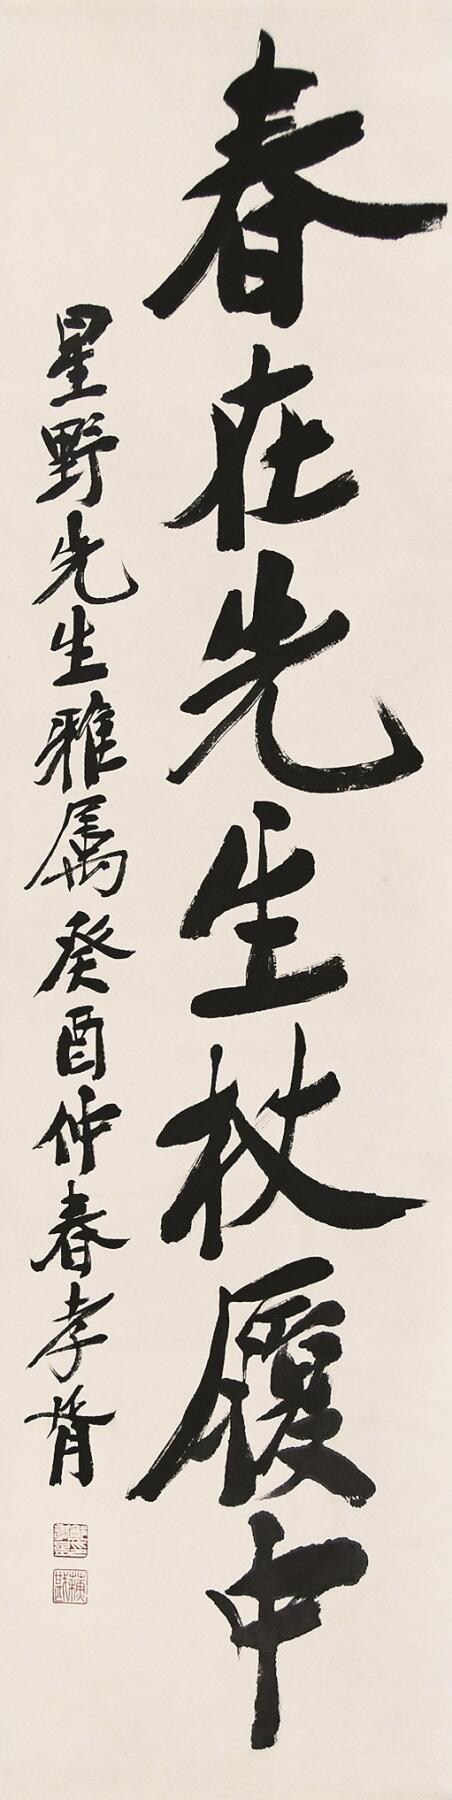 春在先生杖履中
星野先生雅属癸酉仲春孝胥